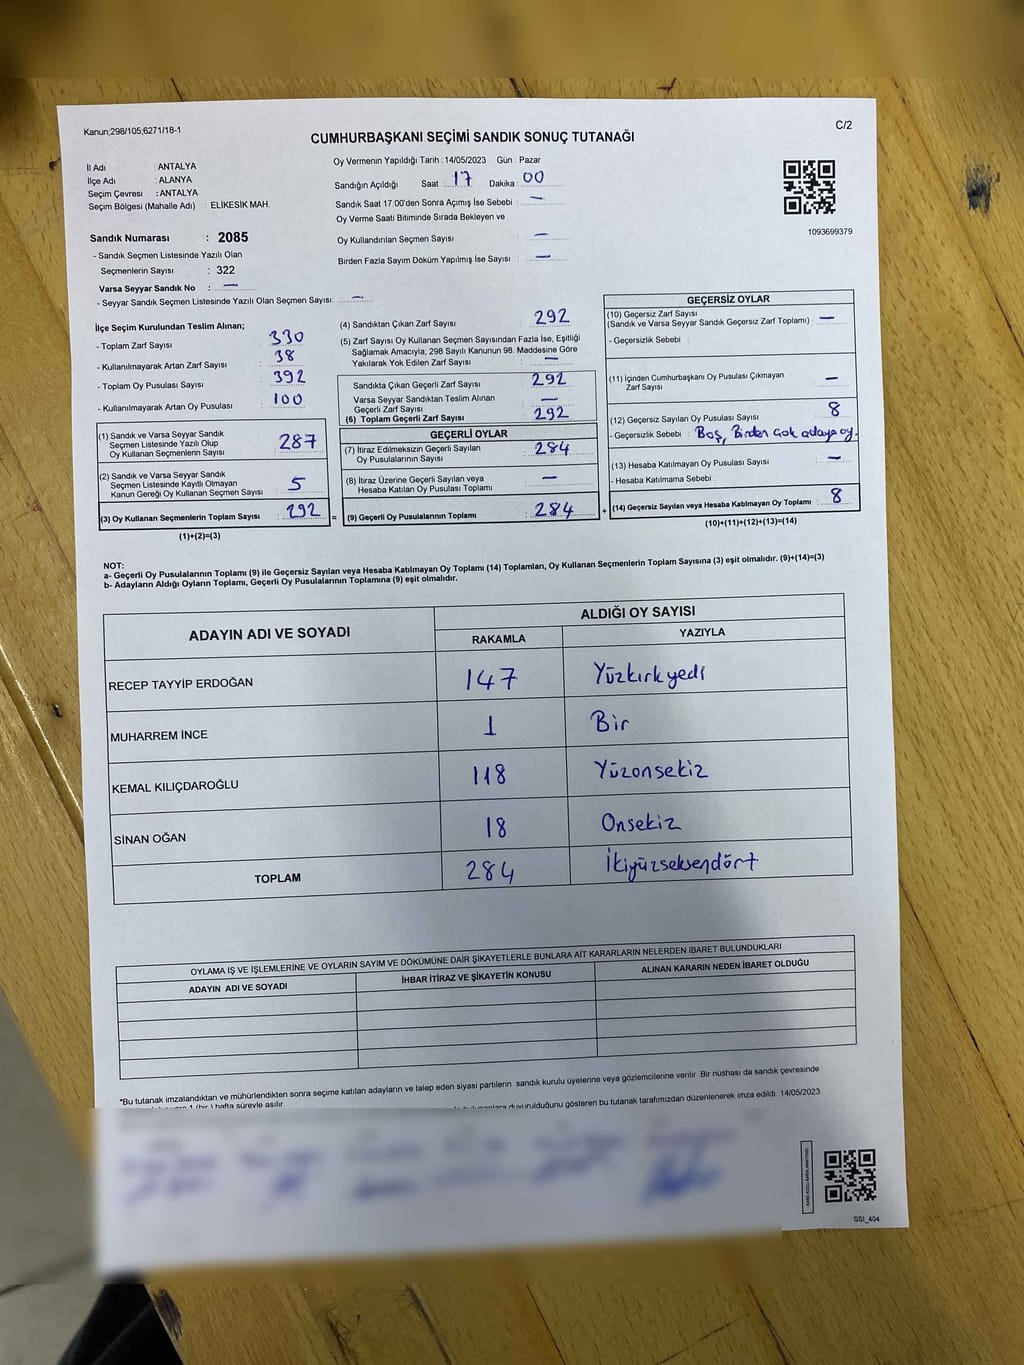 Kanun;298/105;6271/18-1
C/2
CUMHURBAŞKANI SEÇİMİ SANDIK SONUÇ TUTANAĞI
İl Adı : ANTALYA
İlçe Adı : ALANYA
Seçim Çevresi : ANTALYA
Seçim Bölgesi (Mahalle Adı) : ELİKESİK MAH.
Oy Vermenin Yapıldığı Tarih : 14/05/2023 Gün : Pazar
Sandığın Açıldığı Saat : 17 Dakika : 00
Sandık Saat 17.00'den Sonra Açımış İse Sebebi : —
Oy Verme Saati Bitiminde Sırada Bekleyen ve
Oy Kullandırılan Seçmen Sayısı : —
Birden Fazla Sayım Döküm Yapılmış İse Sayısı : —
1093699379
Sandık Numarası : 2085
- Sandık Seçmen Listesinde Yazılı Olan
Seçmenlerin Sayısı : 322
Varsa Seyyar Sandık No : —
- Seyyar Sandık Seçmen Listesinde Yazılı Olan Seçmen Sayısı: —
İlçe Seçim Kurulundan Teslim Alınan;
- Toplam Zarf Sayısı : 330
- Kullanılmayarak Artan Zarf Sayısı : 38
- Toplam Oy Pusulası Sayısı : 392
- Kullanılmayarak Artan Oy Pusulası : 100
(1) Sandık ve Varsa Seyyar Sandık
Seçmen Listesinde Yazılı Olup
Oy Kullanan Seçmenlerin Sayısı : 287
(2) Sandık ve Varsa Seyyar Sandık
Seçmen Listesinde Kayıtlı Olmayan
Kanun Gereği Oy Kullanan Seçmen Sayısı : 5
(3) Oy Kullanan Seçmenlerin Toplam Sayısı : 292
(1)+(2)=(3)
(4) Sandıktan Çıkan Zarf Sayısı : 292
(5) Zarf Sayısı Oy Kullanan Seçmen Sayısından Fazla İse, Eşitliği
Sağlamak Amacıyla; 298 Sayılı Kanunun 98. Maddesine Göre
Yakılarak Yok Edilen Zarf Sayısı : —
Sandıkta Çıkan Geçerli Zarf Sayısı : 292
Varsa Seyyar Sandıktan Teslim Alınan
Geçerli Zarf Sayısı : —
(6) Toplam Geçerli Zarf Sayısı : 292
GEÇERLİ OYLAR
(7) İtiraz Edilmeksizin Geçerli Sayılan
Oy Pusulalarının Sayısı : 284
(8) İtiraz Üzerine Geçerli Sayılan veya
Hesaba Katılan Oy Pusulası Toplamı : —
= (9) Geçerli Oy Pusulalarının Toplamı : 284 +
GEÇERSİZ OYLAR
(10) Geçersiz Zarf Sayısı
(Sandık ve Varsa Seyyar Sandık Geçersiz Zarf Toplamı) : —
- Geçersizlik Sebebi :
(11) İçinden Cumhurbaşkanı Oy Pusulası Çıkmayan
Zarf Sayısı : —
(12) Geçersiz Sayılan Oy Pusulası Sayısı : 8
- Geçersizlik Sebebi : Boş, Birden Çok adaya oy.
(13) Hesaba Katılmayan Oy Pusulası Sayısı : —
- Hesaba Katılmama Sebebi :
(14) Geçersiz Sayılan veya Hesaba Katılmayan Oy Toplamı : 8
(10)+(11)+(12)+(13)=(14)
NOT:
a- Geçerli Oy Pusulalarının Toplamı (9) ile Geçersiz Sayılan veya Hesaba Katılmayan Oy Toplamı (14) Toplamları, Oy Kullanan Seçmenlerin Toplam Sayısına (3) eşit olmalıdır. (9)+(14)=(3)
b- Adayların Aldığı Oyların Toplamı, Geçerli Oy Pusulalarının Toplamına (9) eşit olmalıdır.
ADAYIN ADI VE SOYADI
ALDIĞI OY SAYISI
RAKAMLA YAZIYLA
RECEP TAYYİP ERDOĞAN 147 Yüzkırkyedi
MUHARREM İNCE 1 Bir
KEMAL KILIÇDAROĞLU 118 Yüzonsekiz
SİNAN OĞAN 18 Onsekiz
TOPLAM 284 İkiyüzseksendört
OYLAMA İŞ VE İŞLEMLERİNE VE OYLARIN SAYIM VE DÖKÜMÜNE DAİR ŞİKAYETLERLE BUNLARA AİT KARARLARIN NELERDEN İBARET BULUNDUKLARI
ADAYIN ADI VE SOYADI İHBAR İTİRAZ VE ŞİKAYETİN KONUSU ALINAN KARARIN NEDEN İBARET OLDUĞU
*Bu tutanak imzalandıktan ve mühürlendikten sonra seçime katılan adayların ve talep eden siyasi partilerin sandık kurulu üyelerine veya gözlemcilerine verilir. Bir nüshası da sandık çevresinde
1 (bir) hafta süreyle asılır.
duyurulduğunu gösteren bu tutanak tarafımızdan düzenlenerek imza edildi. 14/05/2023
SSI_404